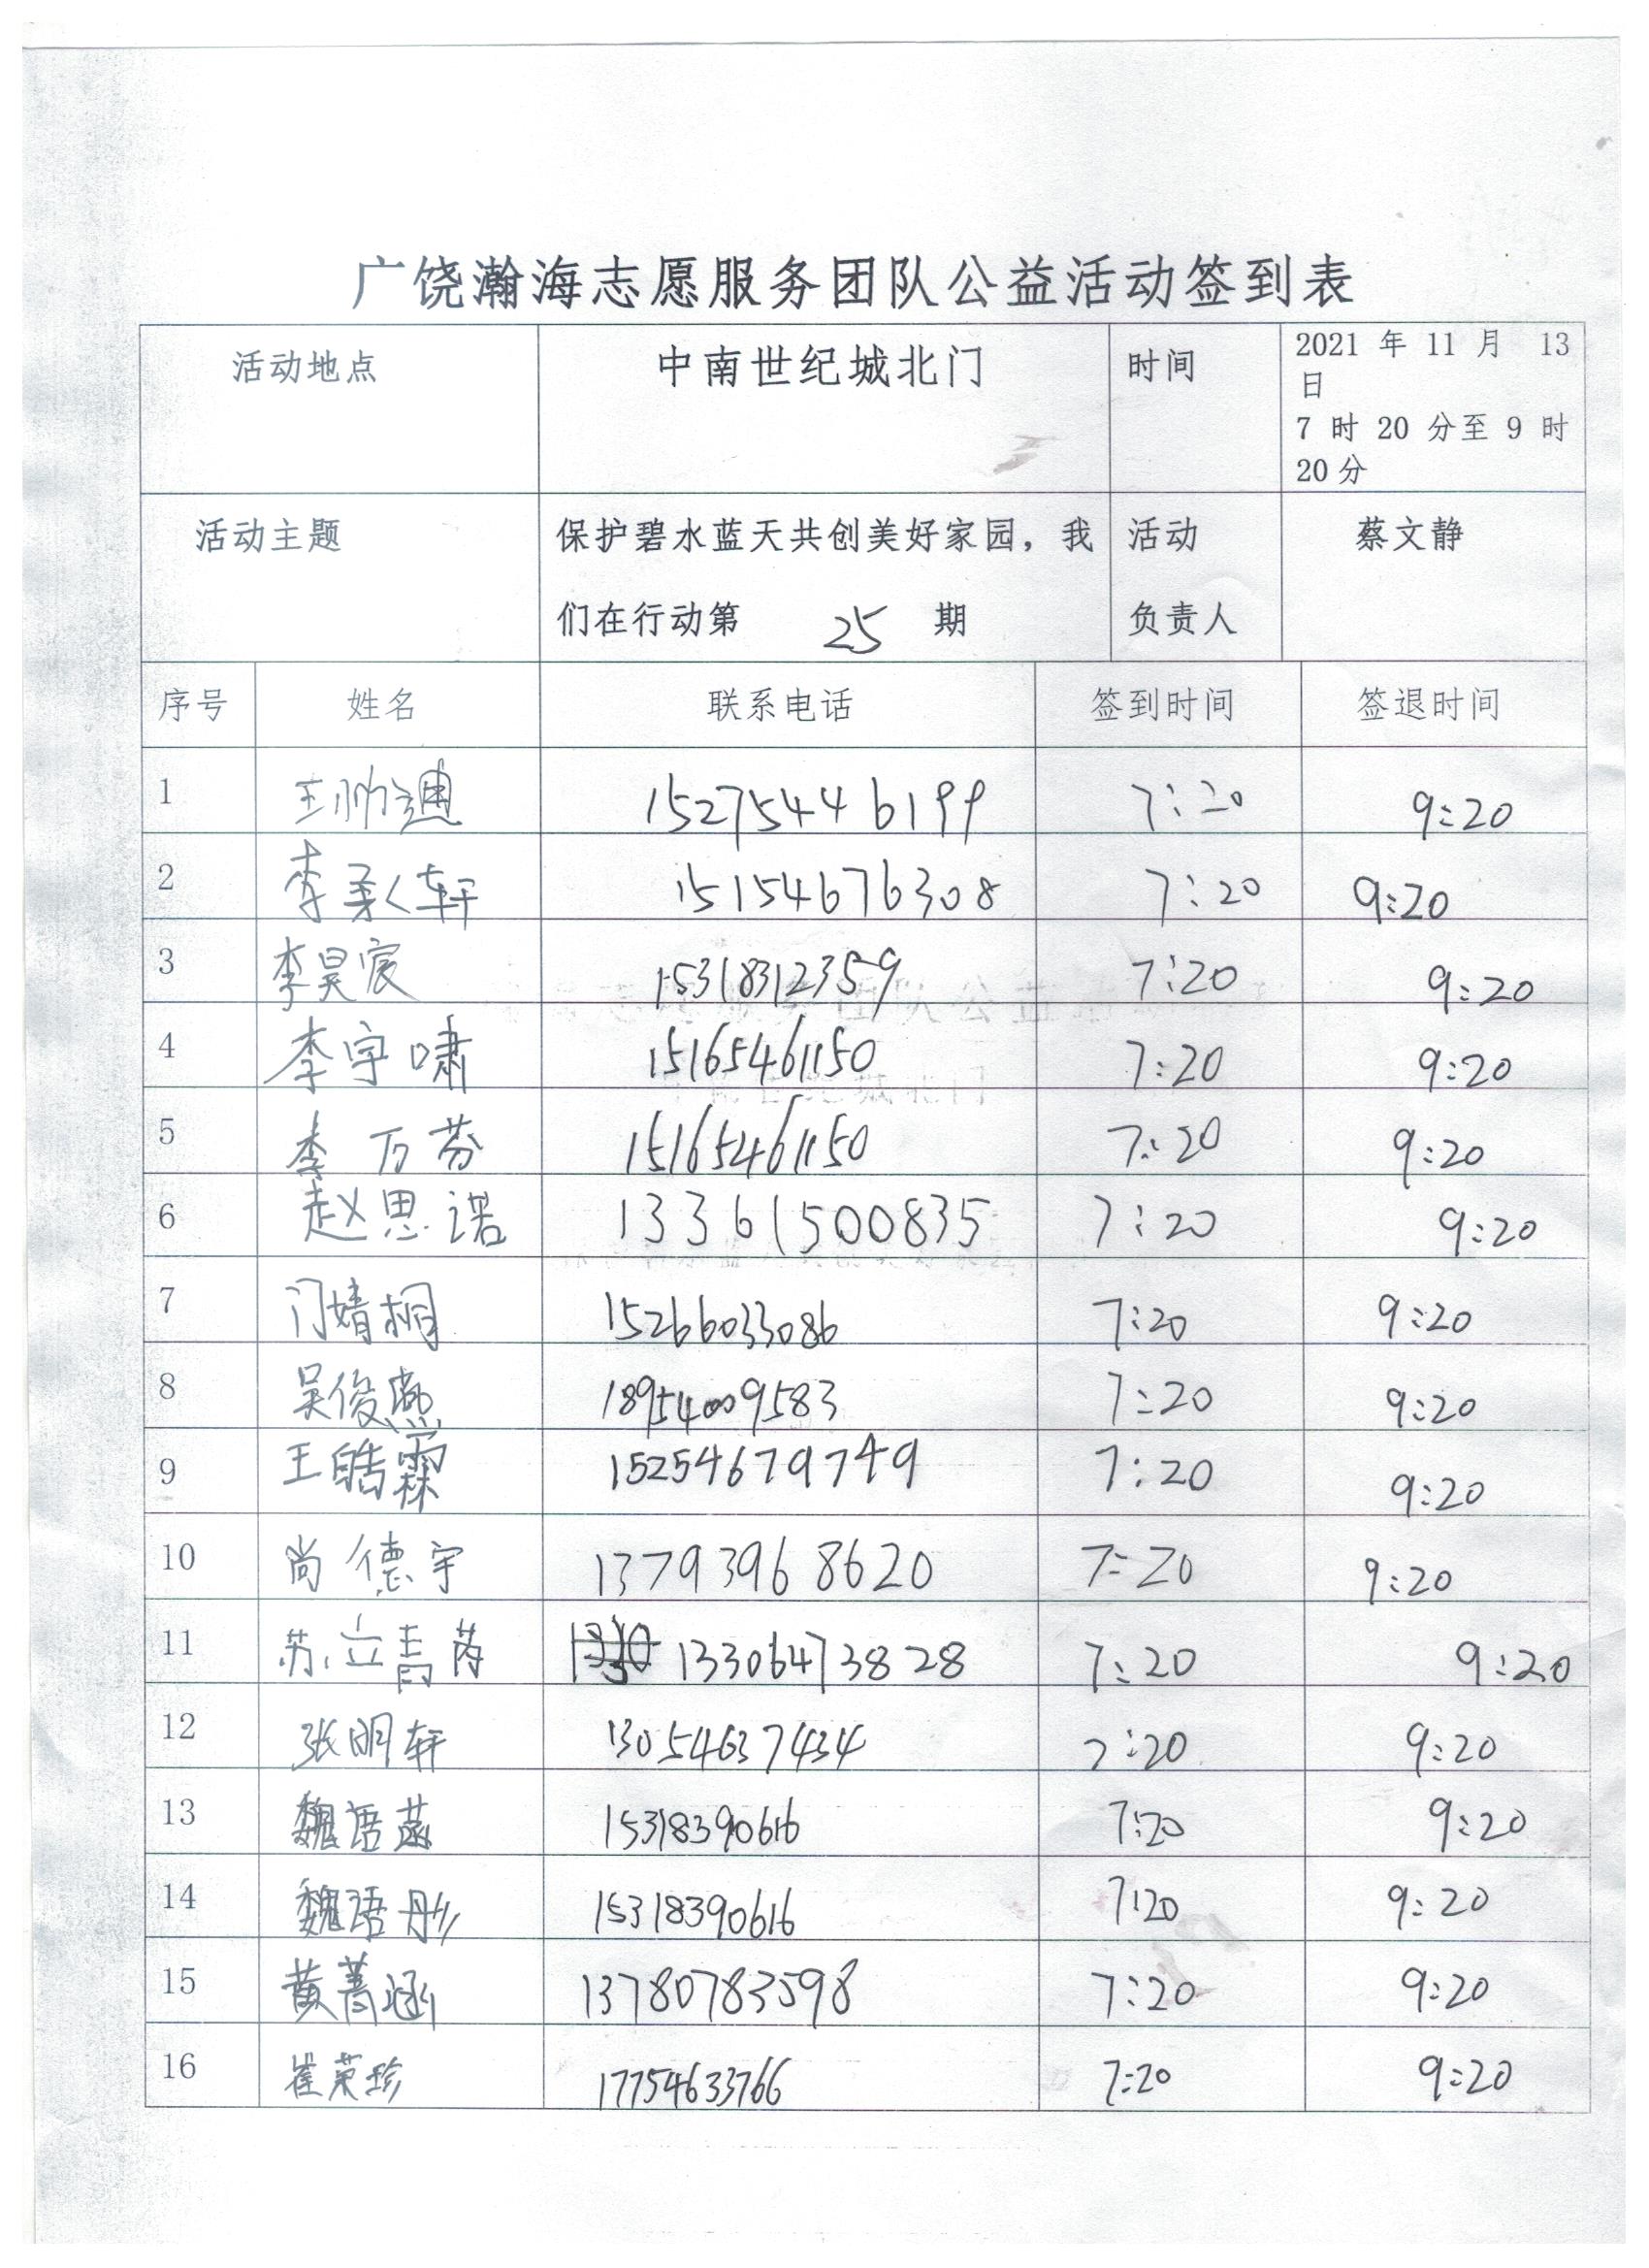 广饶瀚海志愿服务团队公益活动签到表
活动地点 中南世纪城北门 时间 2021 年 11 月 13
日
7 时 20 分至 9 时
20分
活动主题 保护碧水蓝天共创美好家园，我 活动 蔡文静
们在行动第 25 期 负责人
序号 姓名 联系电话 签到时间 签退时间
1 王帅迪 15275446199 7:20 9:20
2 李承轩 15154676308 7:20 9:20
3 李昊宸 15318312359 7:20 9:20
4 李宇啸 15165461150 7:20 9:20
5 李万芬 15165461150 7:20 9:20
6 赵思诺 13361500835 7:20 9:20
7 门婧桐 15266033086 7:20 9:20
8 吴俊燃 18954009583 7:20 9:20
9 王皓霖 15254679749 7:20 9:20
10 尚德宇 13793968620 7:20 9:20
11 苏立青 13306473828 7:20 9:20
12 张明轩 13054637434 7:20 9:20
13 魏语菡 15318390616 7:20 9:20
14 魏语彤 15318390616 7:20 9:20
15 黄菁涵 13780783598 7:20 9:20
16 崔荣珍 17754633766 7:20 9:20